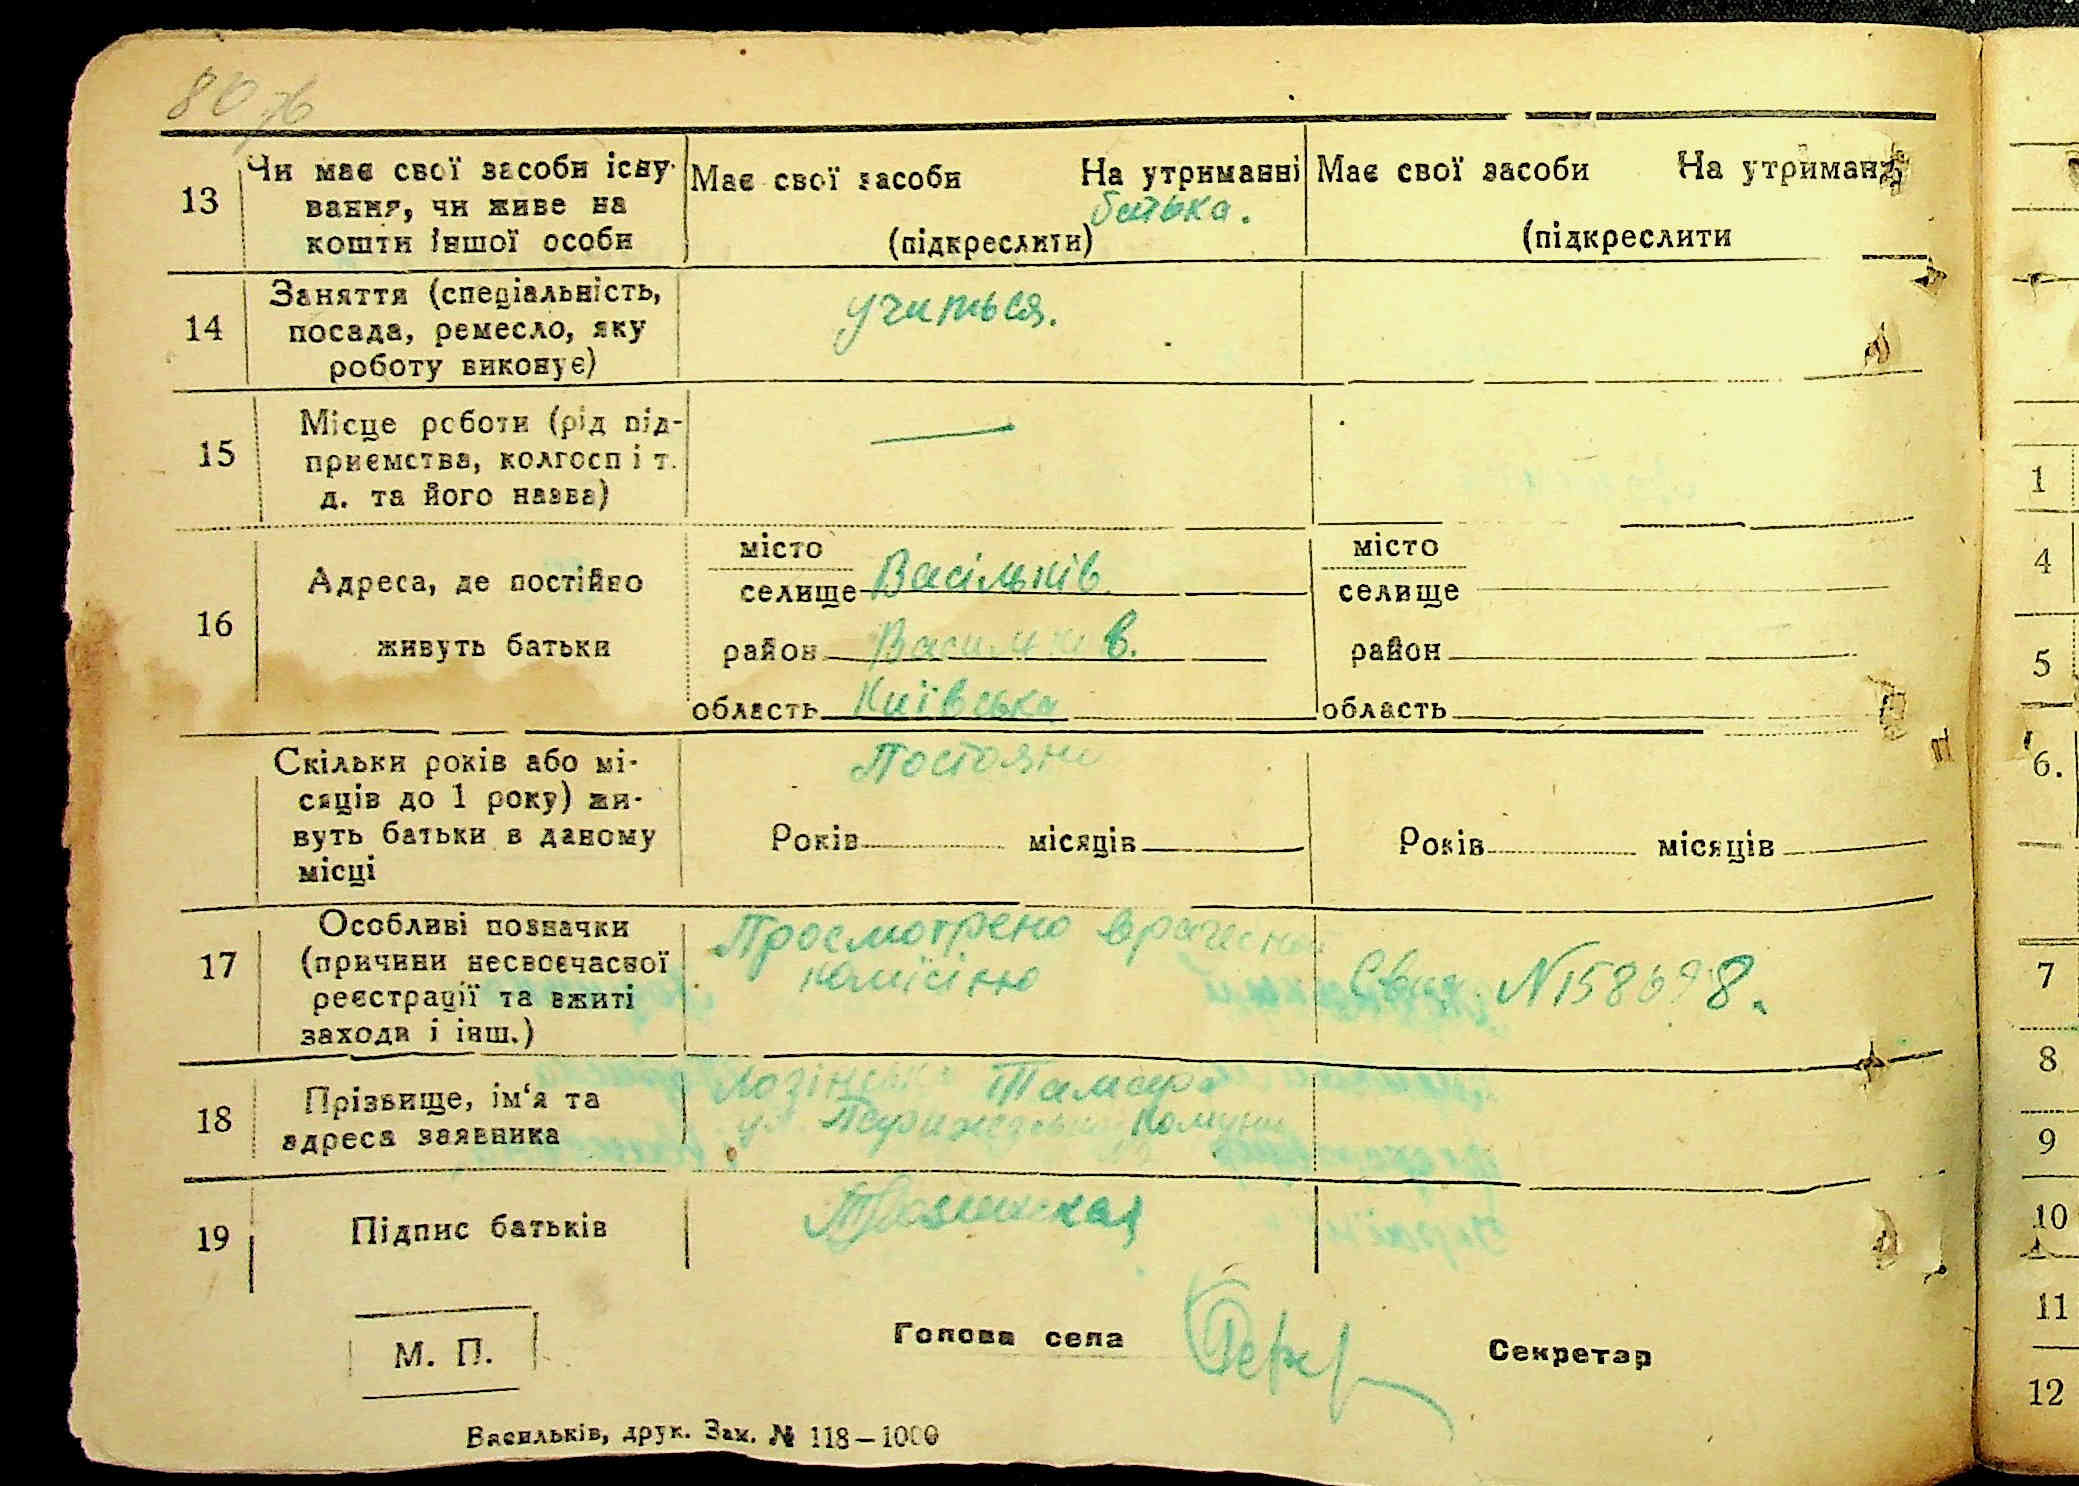 80 зв
13
Чи має свої засоби існу-
вання, чи живе на
кошти іншої особи
Має свої засоби На утриманні
батька.
(підкреслити)
Має свої засоби На утриман
(підкреслити
14
Заняття (спеціальність,
посада, ремесло, яку
роботу виконує)
учиться.
15
Місце роботи (рід під-
приємства, колгосп і т.
д. та його назва)
—
16
Адреса, де постійно
живуть батьки
місто
селище Васільків
район Васильків.
область Київська
місто
селище
район
область
Скільки років або мі-
сяців до 1 року) жи-
вуть батьки в даному
місці
Постояно
Років місяців
Років місяців
17
Особливі позначки
(причини несвоєчасної
реєстрації та вжиті
заходи і інш.)
Просмотрено врачесной
комісією
Свид. N158698.
18
Прізвище, ім‘я та
адреса заявника
Лозінська Тамара
ул. Парижської Комуни
19
Підпис батьків
ТЛозинская
М. П.
Голова села
Секретар
Васильків, друк. Зам. № 118—1000
1
4
5
6.
7
8
9
10
11
12